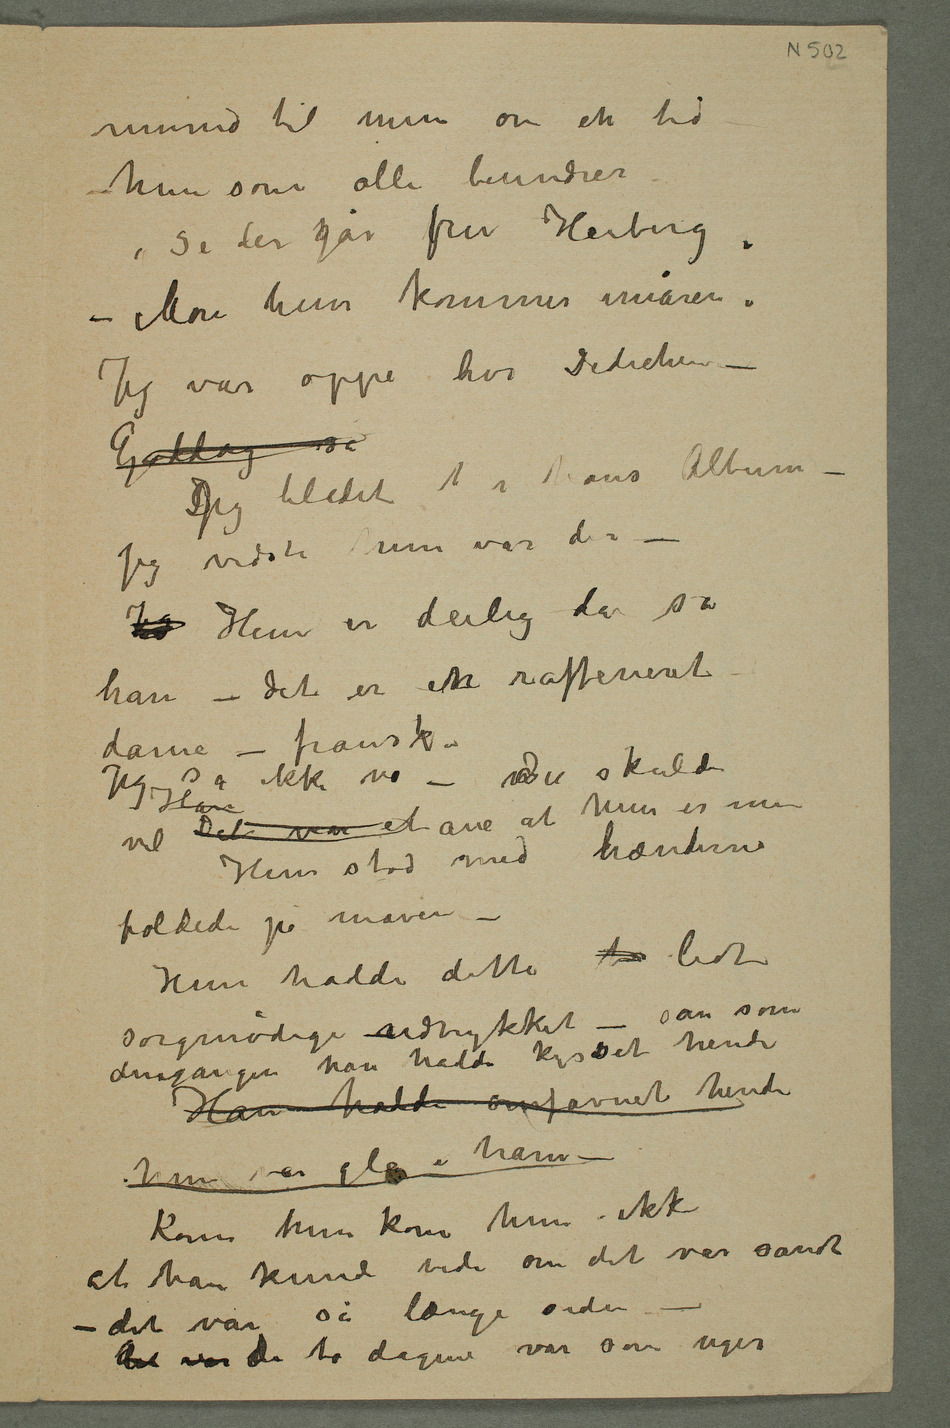 N 502
mund til min om en tid
– hun som alle beundrer
, Se der går fru Heiberg .
– Mon hun kommer imåren .
Jeg var oppe hos Dedichen –
Goddag sa
Jeg bladet i hans Album –
jeg vidste hun var der –
Jeg Hun er deilig da sa
han – det er en raffeneret
dame – fransk.
Jeg sa ikke no – Du skulde
Han
vel Det var et ane at hun er min
Hun stod med hænderne
foldede på maven –
Hun hadde dette to lidt
sorgmodige udtrykket – san som
dengangen han hadde kysset hende
Han hadde omfavnet hende
hun var gla i ham –
Kom hun kom hun ikke
at han kunde vide om det var sandt
– det var så længe siden –
det var de to dagene var som uger